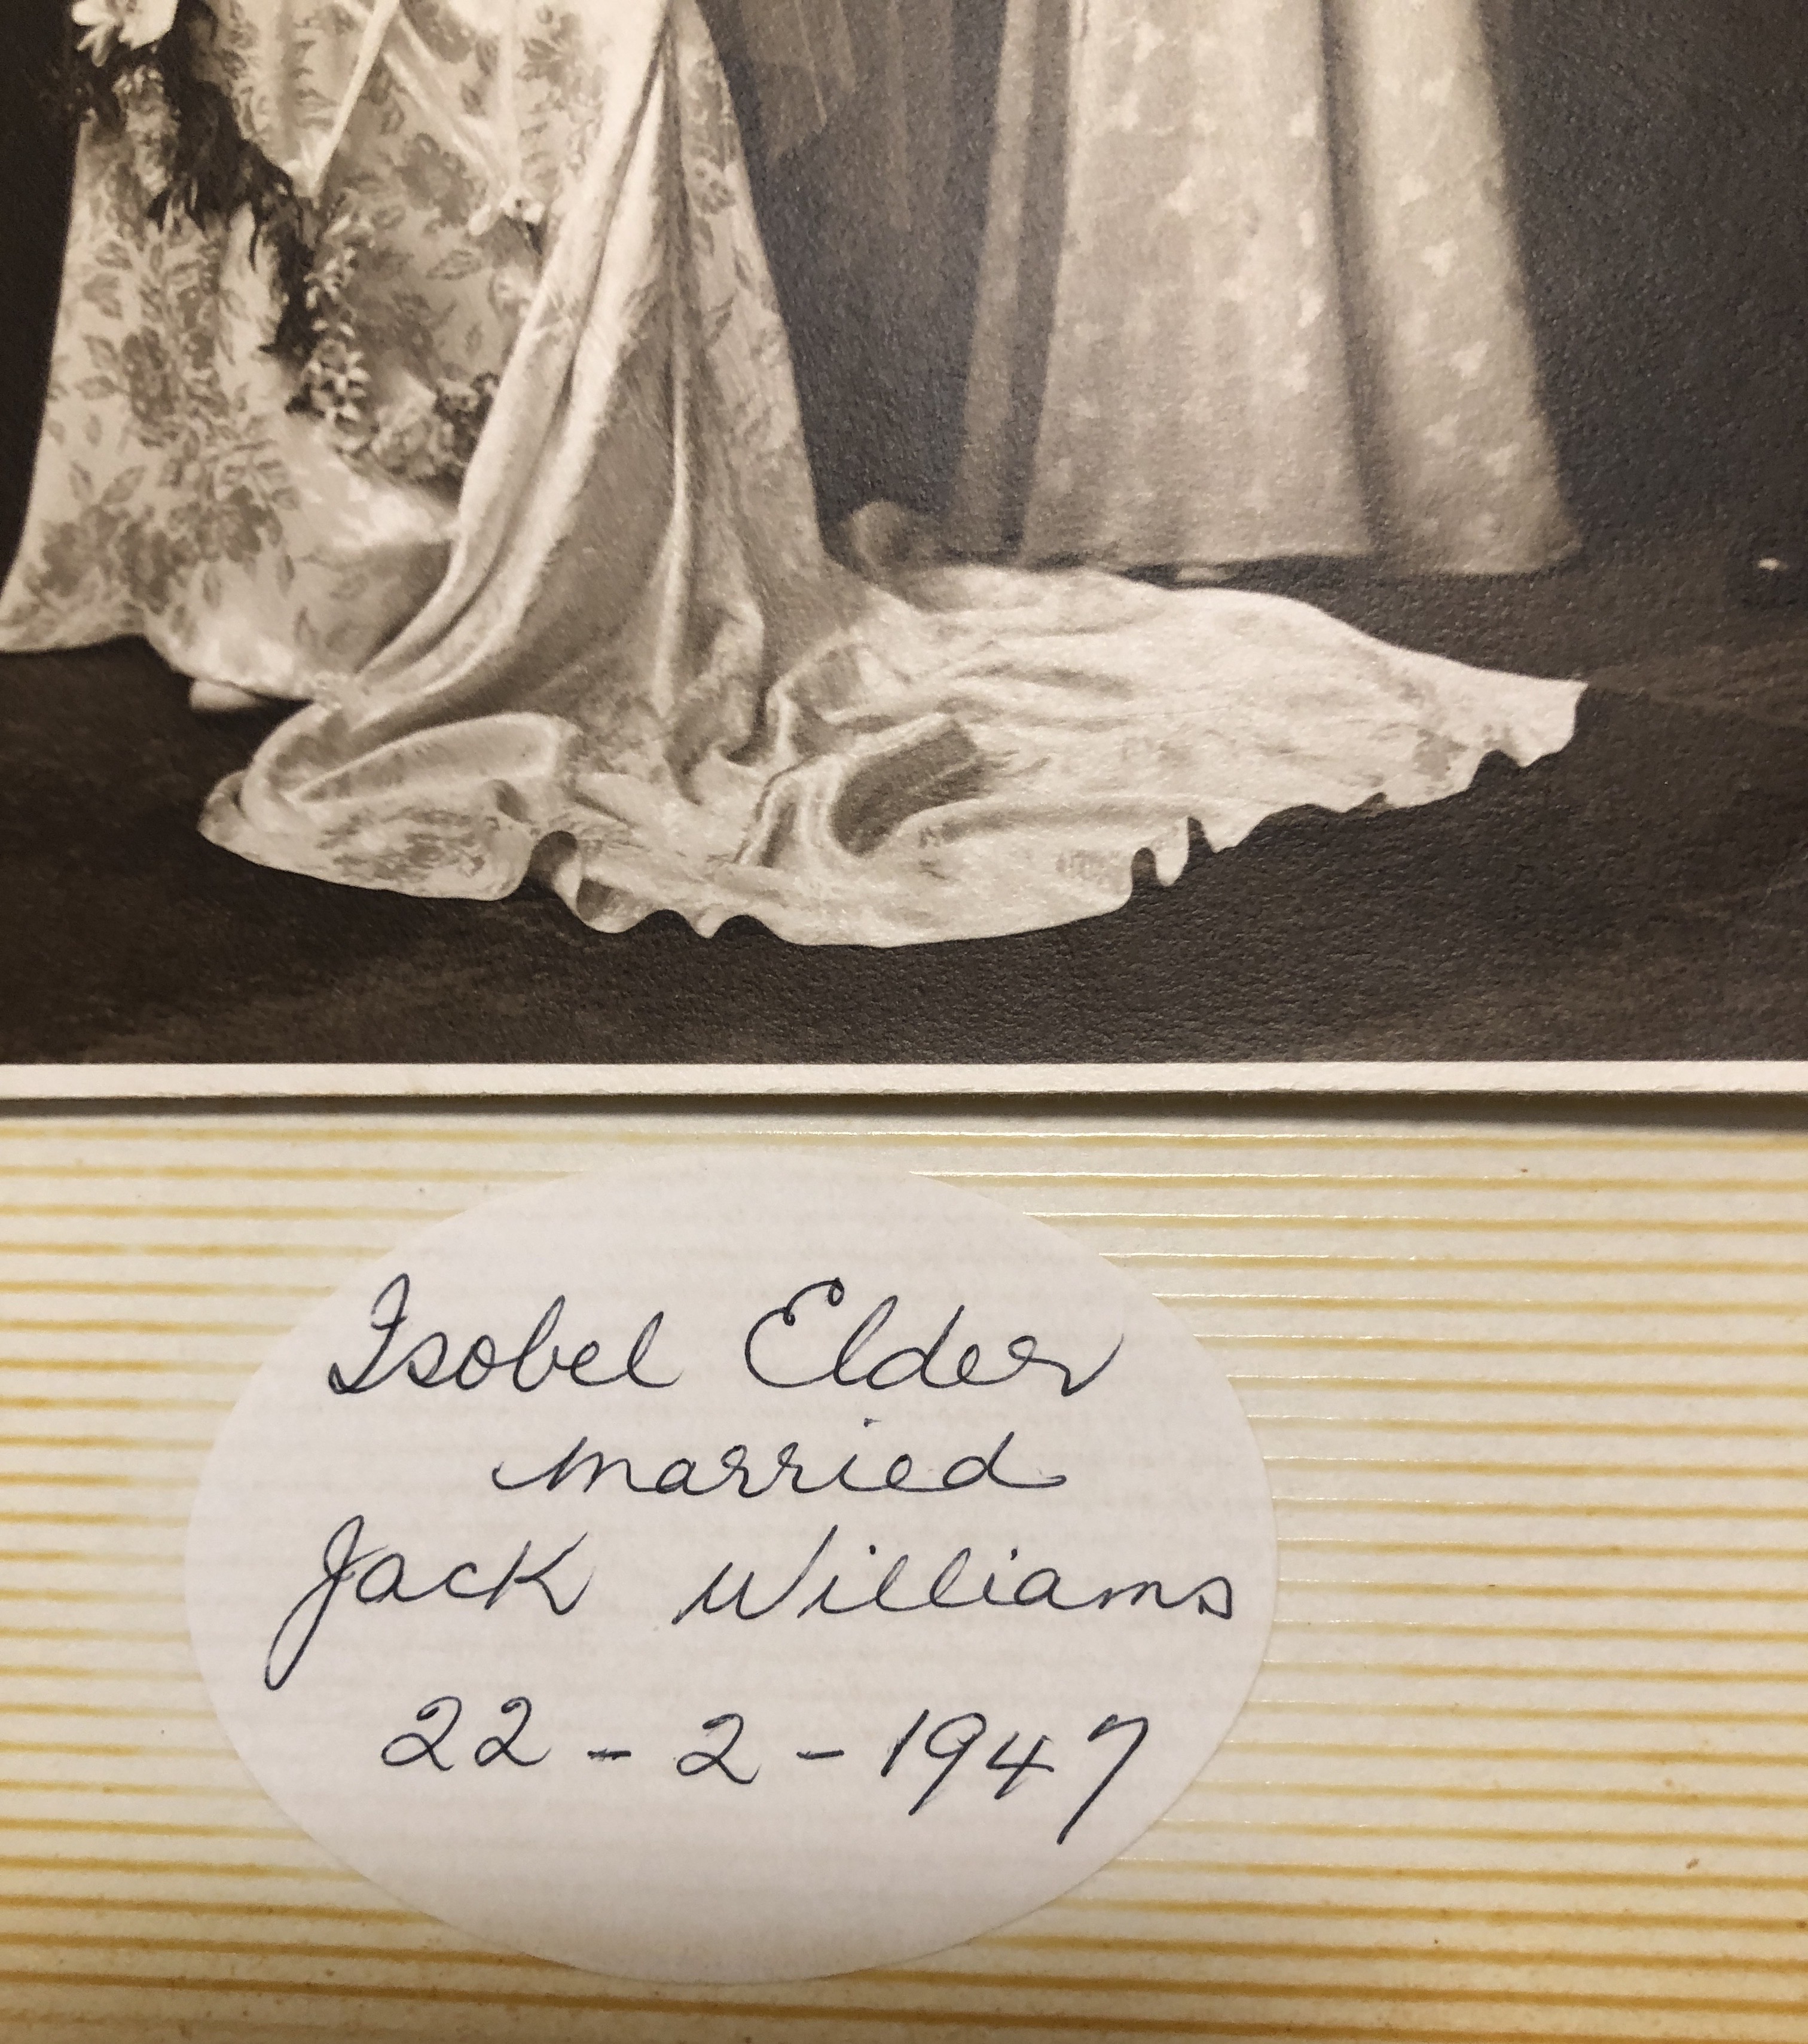 Isobel Elder
married
Jack Williams
22-2-1947